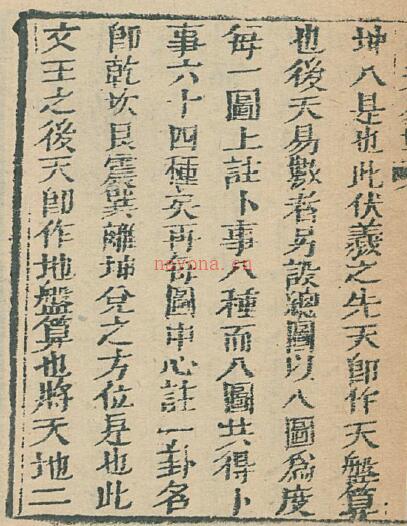 坤八是也此伏羲之先天卽作天盤算
也後天易數者另設總圖以八圖爲度
每一圖上註卜事八種而八圖共得卜
事六十四種矣再每圖中心註一卦名
卽乾坎艮震巽離坤兌之方位是也此
文王之後天卽作地盤算也將天地二
nayona.cn